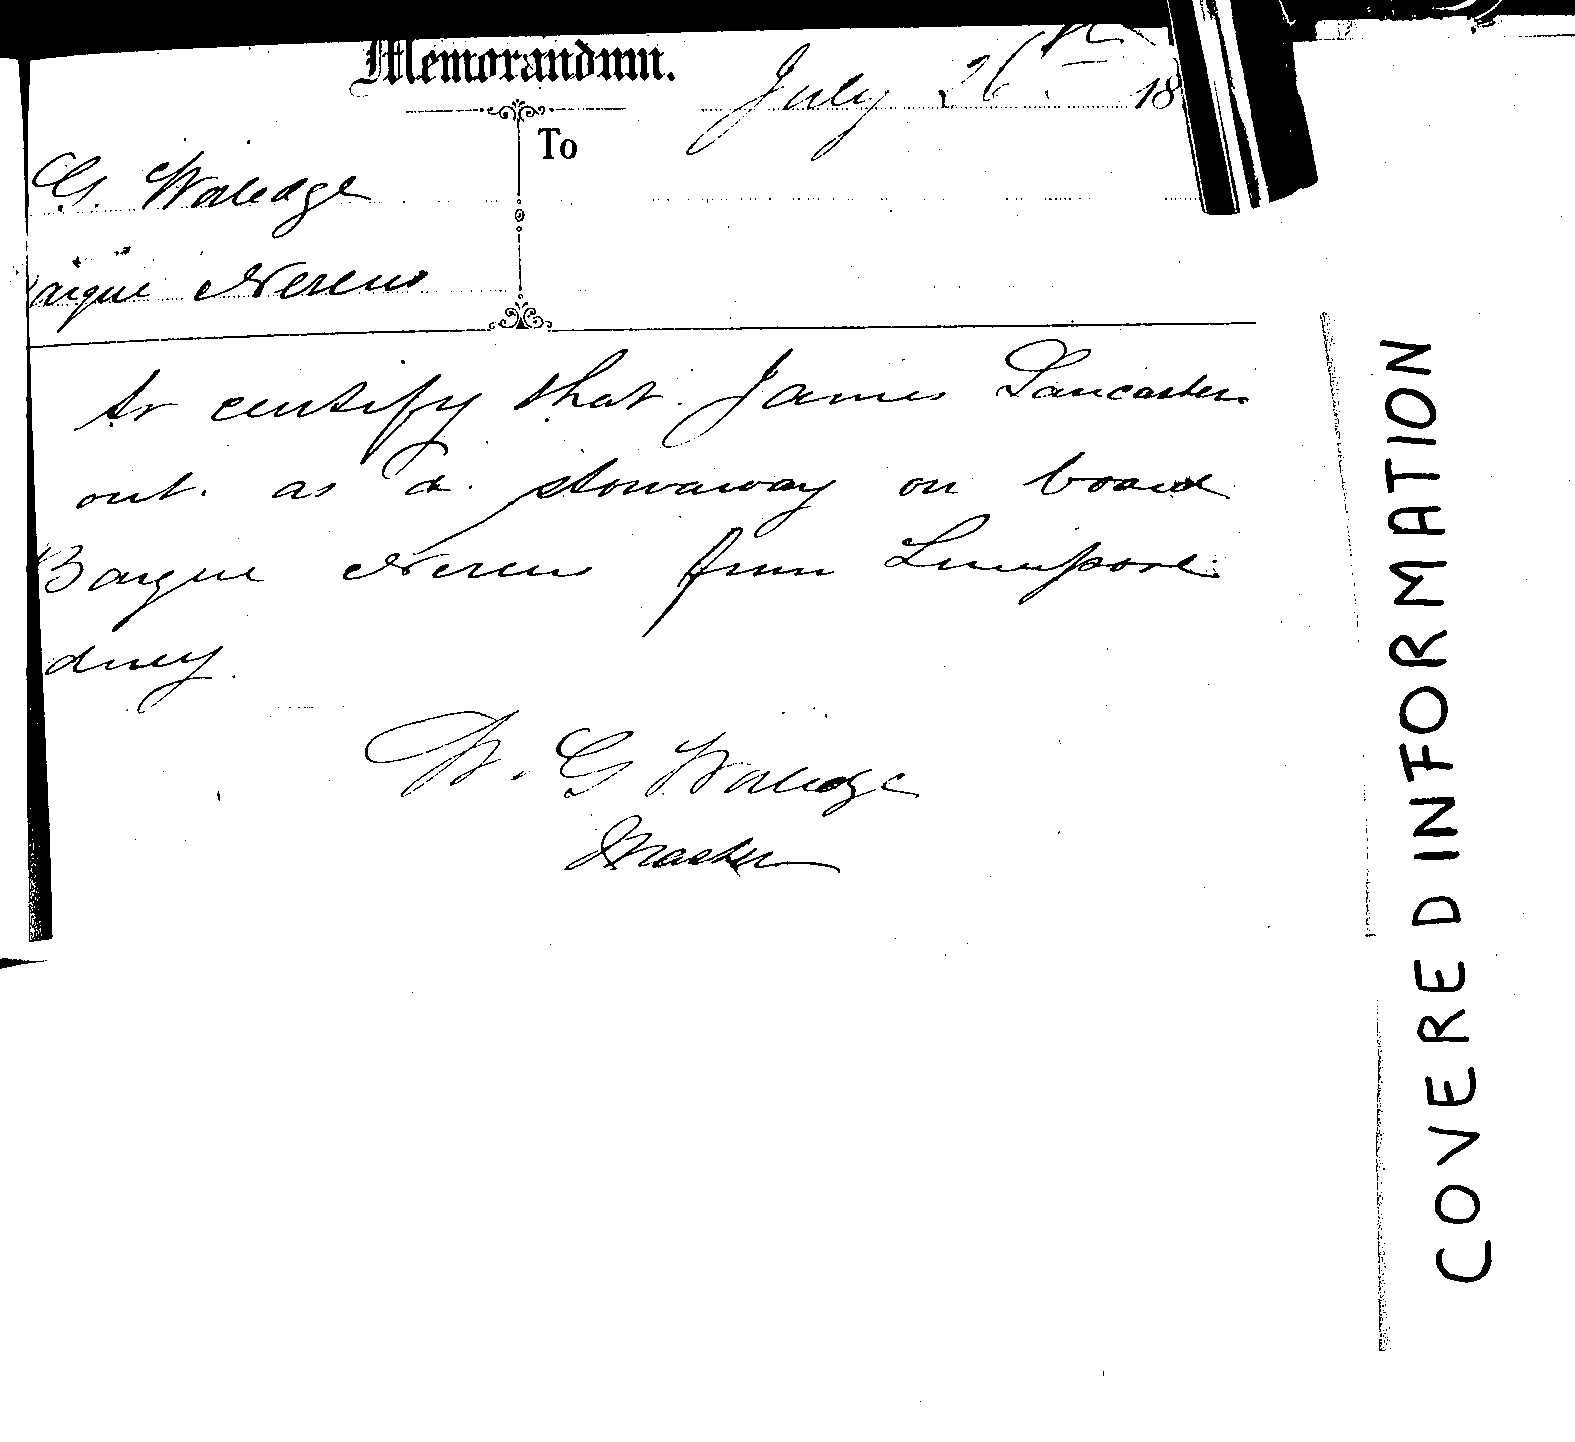 Memorandum.
July 26th 18
To
G. Walledge
arque Nereus
to certify that James Lancaster
out as a stowaway on board
Barque Nereus from Liverpool
dney.
W. G Walledge
Master
COVERED INFORMATION